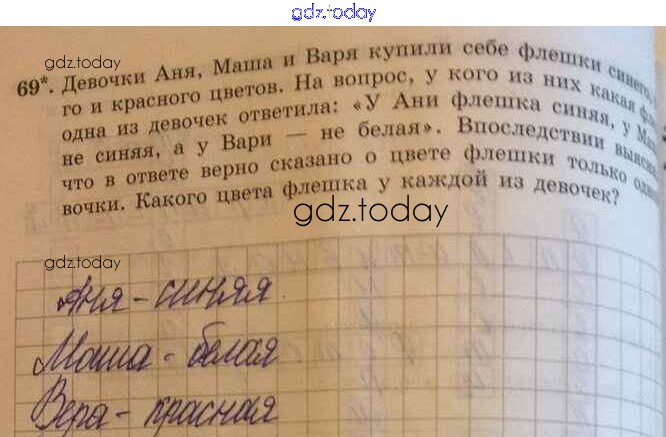 gdz.today
gdz.today
69*. Девочки Аня, Маша и Варя купили себе флешки синего,
го и красного цветов. На вопрос, у кого из них какая
одна из девочек ответила: «У Ани флешка синяя, у
не синяя, а у Вари — не белая». Впоследствии
что в ответе верно сказано о цвете флешки только
вочки. Какого цвета флешка у каждой из девочек?
gdz.today
gdz.today
Аня - синяя
Маша - белая
Вера - красная